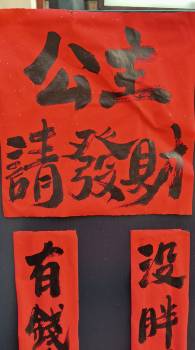 公主
請發財
有錢
沒胖